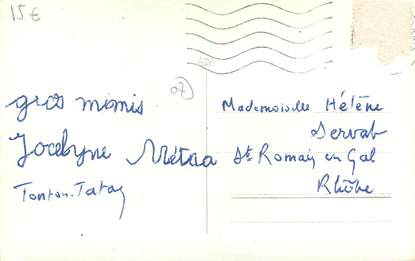 15€
07
gros mimis
Jocelyne
Tonton. Tatay
Mademoiselle Hélène
Servab
St. Romain en Gal
Rhône